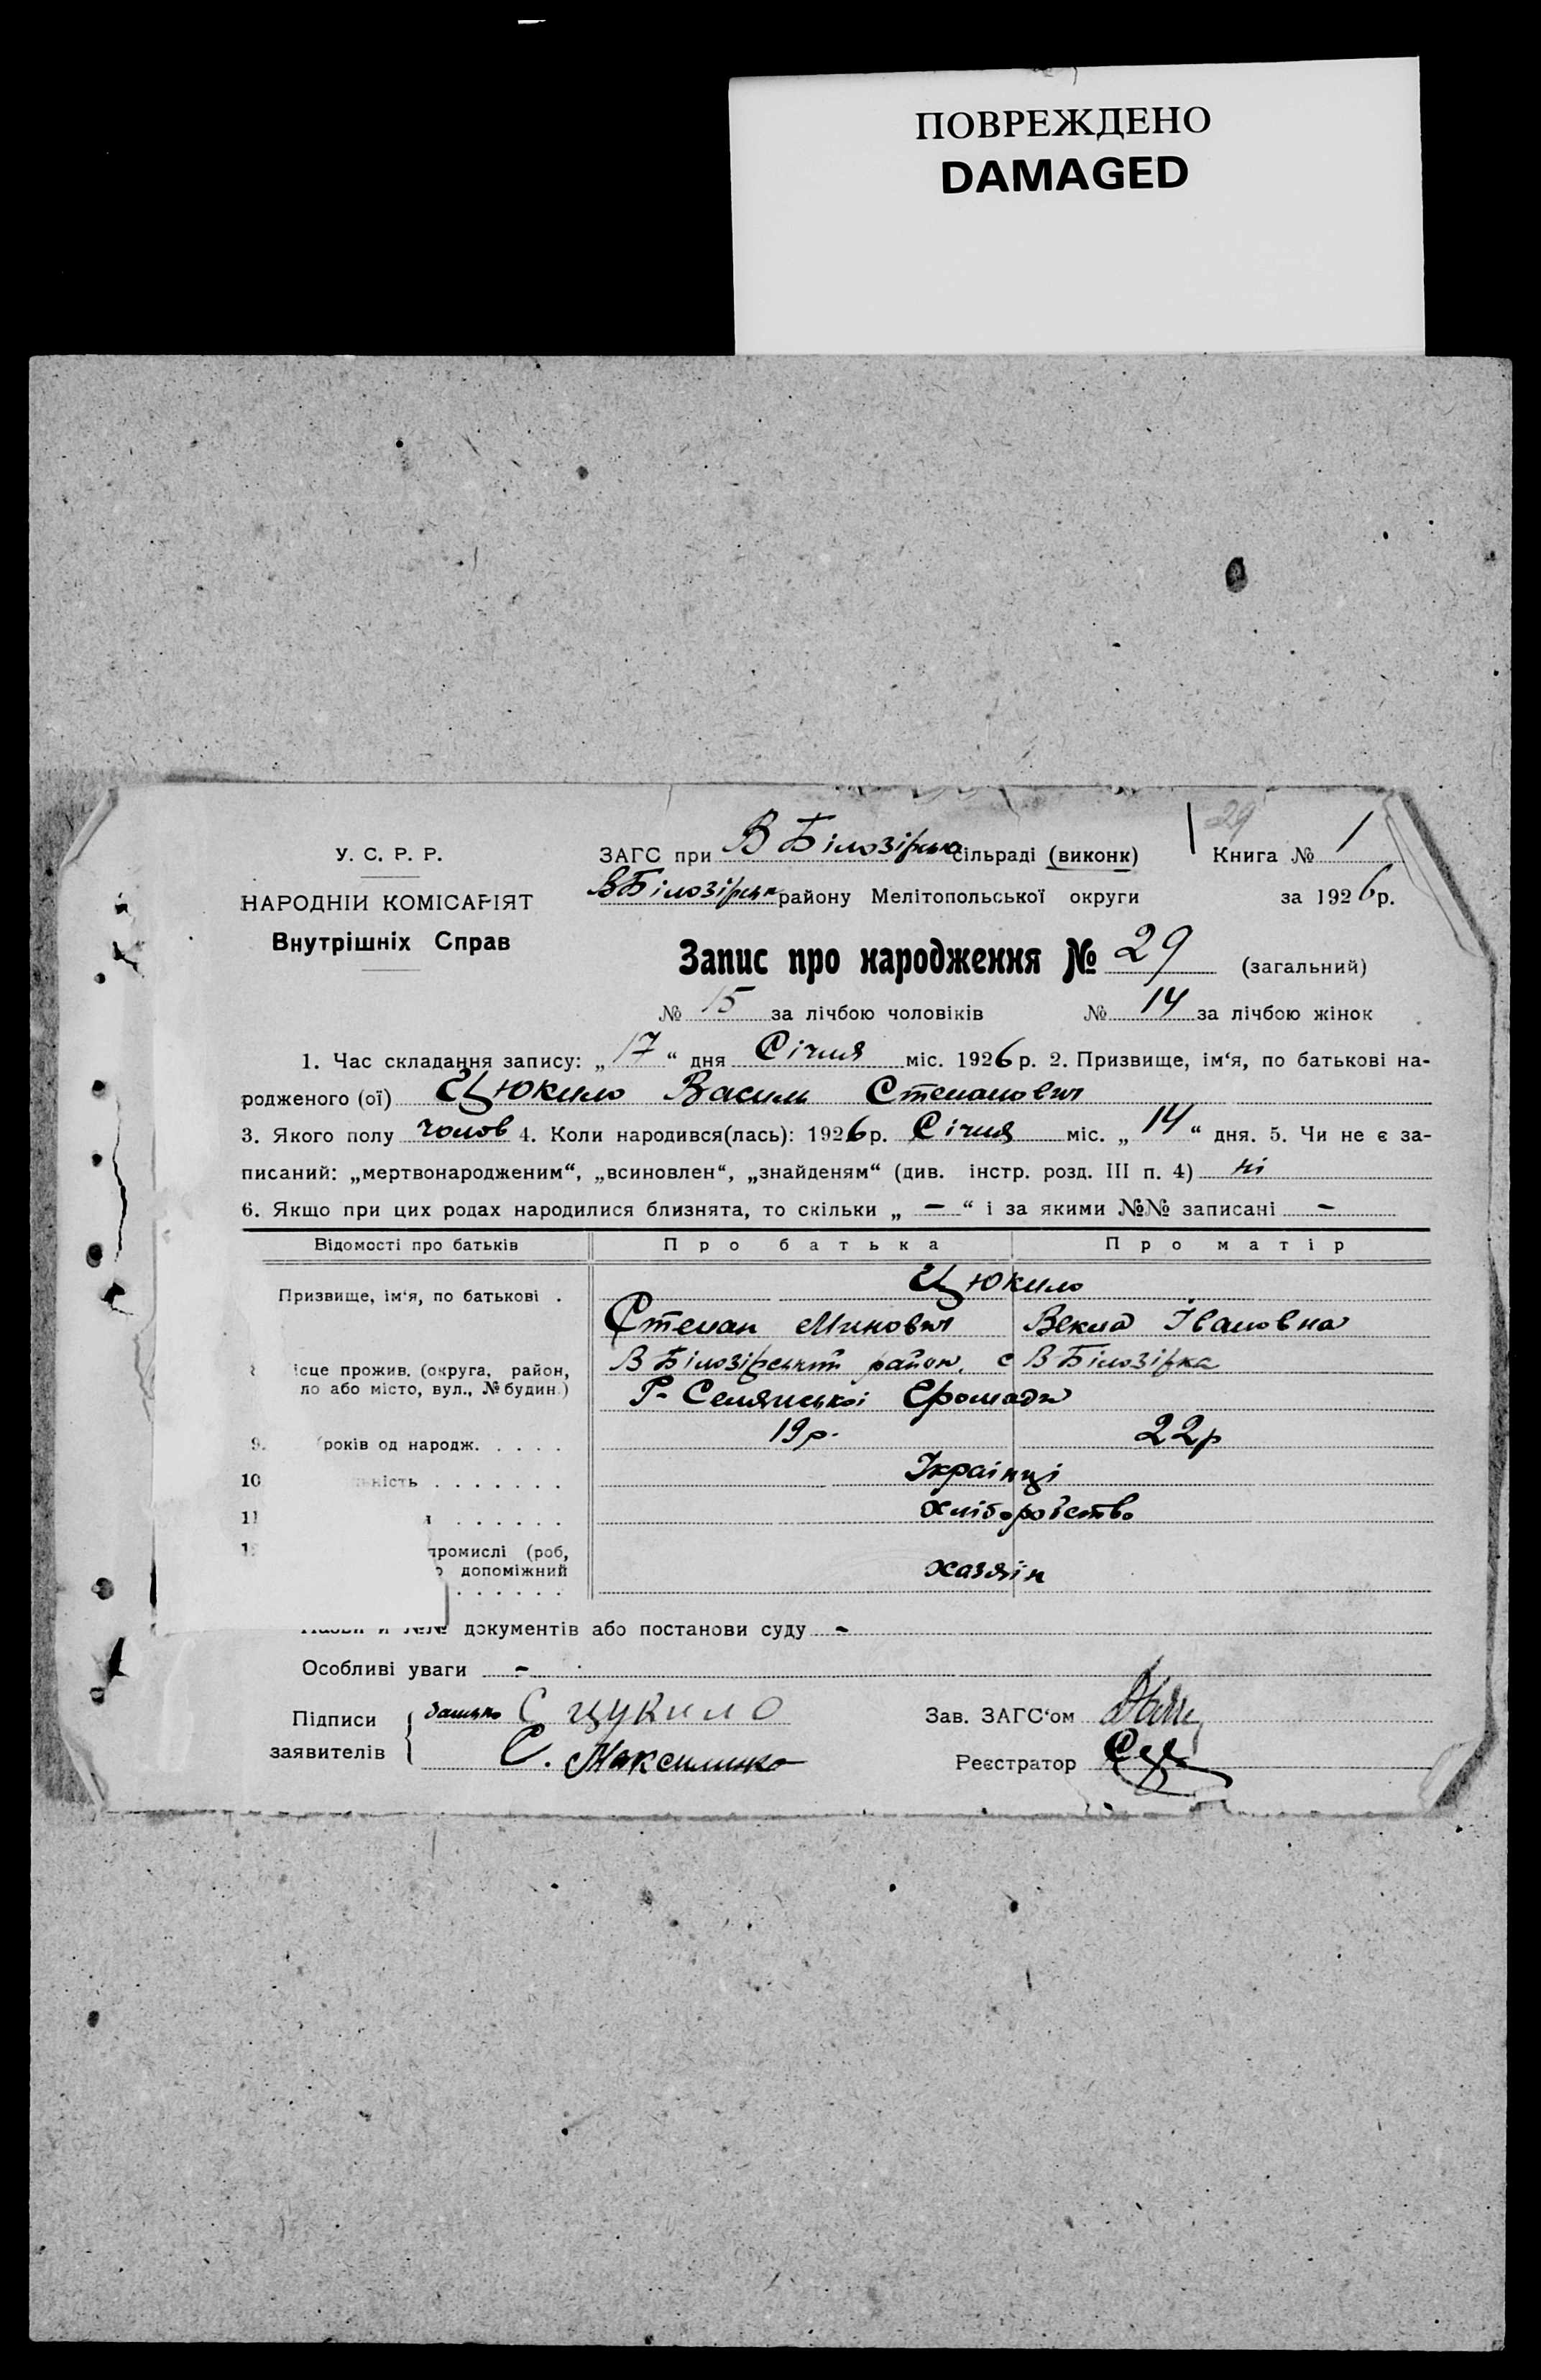 ПОВРЕЖДЕНО
DAMAGED
29
У. С. Р. Р.
НАРОДНІЙ КОМІСАРІЯТ
Внутрішніх Справ
ЗАГС при В Білозірсько сільраді (виконк) Книга № 1
В Білозірськ району Мелітопольської округи за 1926 р.
Запис про народження № 29 (загальний)
№ 15 за лічбою чоловіків № 14 за лічбою жінок
1. Час складання запису: „ 17 “ дня Січня міс. 1926 р. 2. Призвище, ім‘я, по батькові на-
родженого (ої) Цюкило Василь Степанович
3. Якого полу чолов 4. Коли народився(лась): 1926 р. Січня міс. „ 14 “ дня. 5. Чи не є за-
писаний: „мертвонародженим“, „всиновлен“, „знайденям“ (див. інстр. розд. III п. 4) ні
6. Якщо при цих родах народилися близнята, то скільки „ – “ і за якими №№ записані –
Відомості про батьків Про батька Про матір
Призвище, ім‘я, по батькові . Цюкило
Степан Минович Векла Івановна
ісце прожив. (округа, район, В Білозірський район, с В Білозірка
ло або місто, вул., № будин.) Р- Селянської Громади
9. років од народж. . . . . 19 р. 22 р
10 ьність . . . . . . . Українці
11 . . . . . . Хліборобство
промислі (роб,
допоміжний Хазяїн
. . . . . .
Назви й №№ документів або постанови суду –
Особливі уваги –
Підписи батько С цукило Зав. ЗАГС‘ом
заявителів С. Максименко Реєстратор